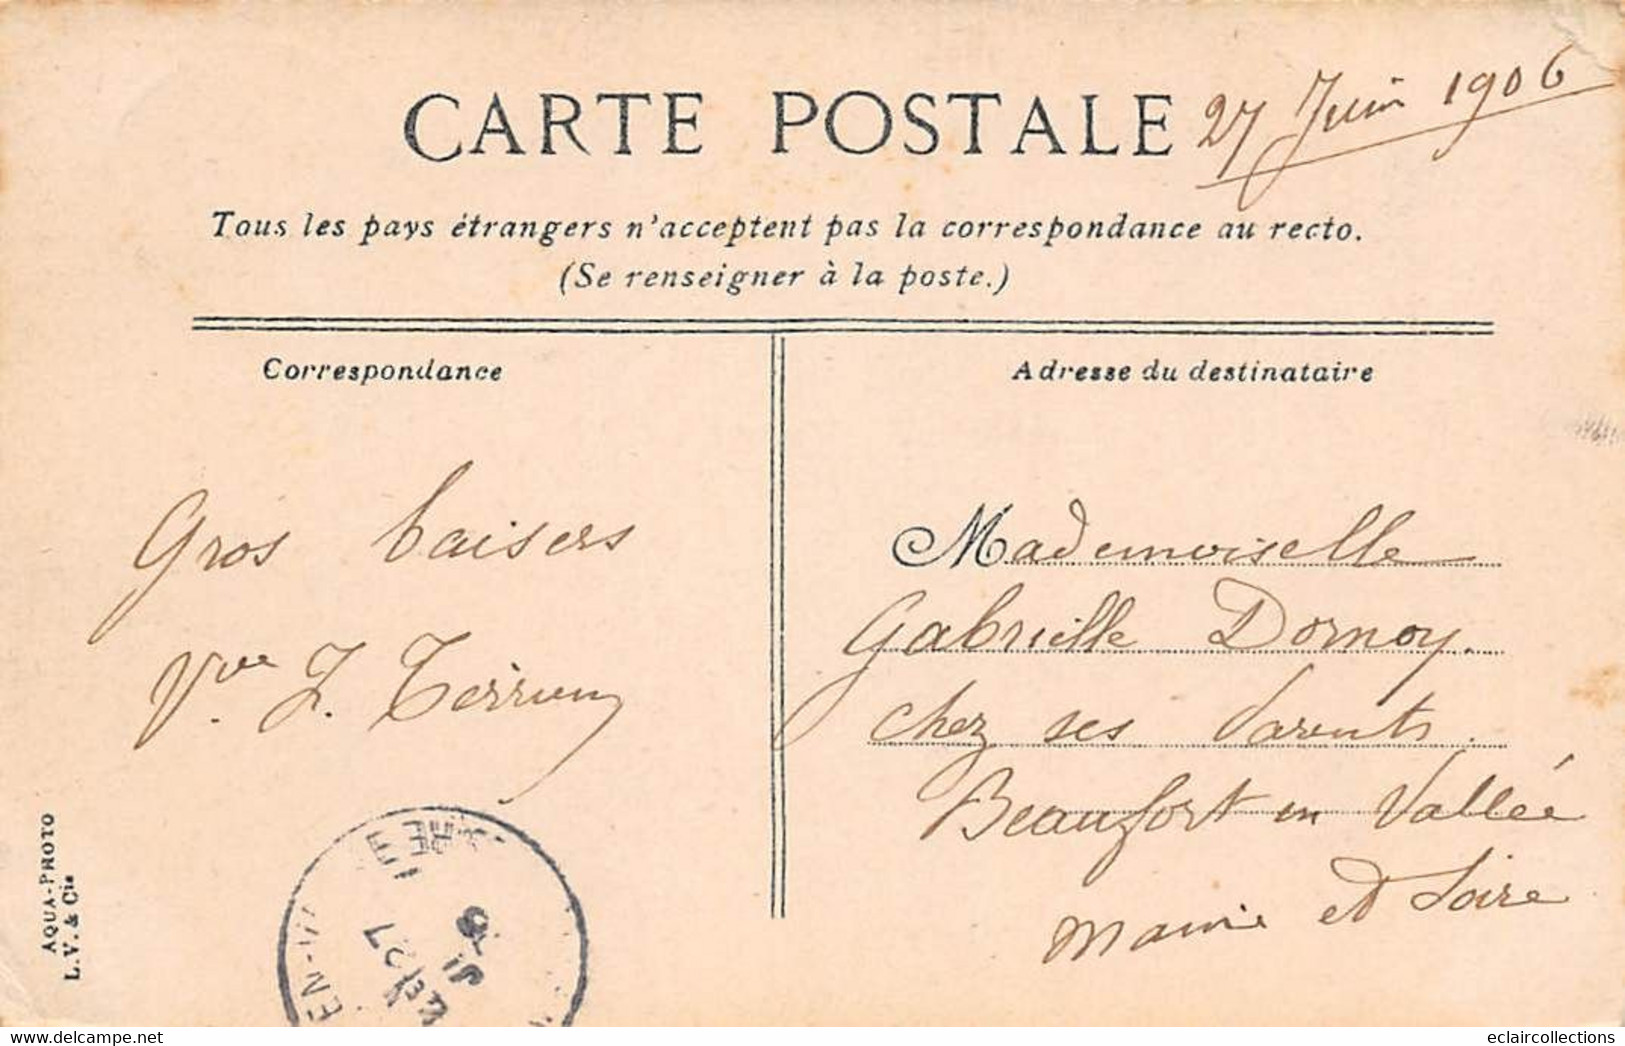 CARTE POSTALE
27 Juin 1906
Tous les pays étrangers n'acceptent pas la correspondance au recto.
(Se renseigner à la poste.)
Correspondance
Adresse du destinataire
Gros baisers
Vve Z. Terrien
Mademoiselle
Gabrielle Dornoy.
chez ses Parents.
Beaufort en Vallée
Maine et Loire
AQUA-PHOTO
L. V. & Cie
EN-VA
27
eclaircollections